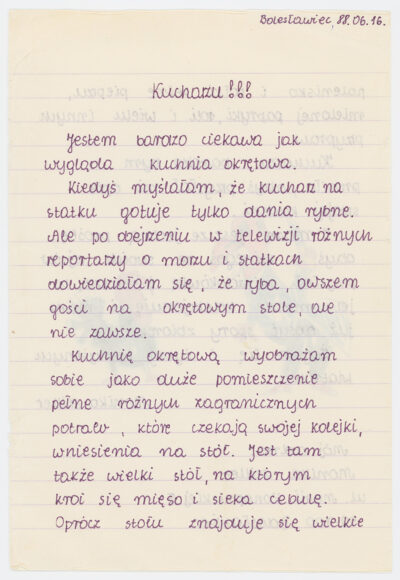 Bolesławiec, 88.06.16.
Kucharzu!!!
Jestem bardzo ciekawa jak
wygląda kuchnia okrętowa.
Kiedyś myślałam, że kucharz na
statku gotuje tylko dania rybne.
Ale po obejrzeniu w telewizji różnych
reportaży o morzu i statkach
dowiedziałam się, że ryba, owszem
gości na okrętowym stole, ale
nie zawsze.
Kuchnię okrętową wyobrażam
sobie jako duże pomieszczenie
pełne różnych zagranicznych
potraw, które czekają swojej kolejki,
wniesienia na stół. Jest tam
także wielki stół, na którym
kroi się mięso i sieka cebulę.
Oprócz stołu znajduje się wielkie